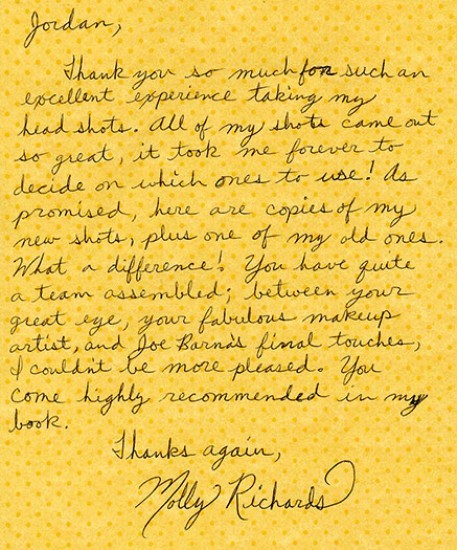 Jordan,
Thank you so much for such an
excellent experience taking my
head shots. All of my shots came out
so great, it took me forever to
decide on which ones to use! As
promised, here are copies of my
new shots, plus one of my old ones.
What a difference! You have quite
a team assembled; between your
great eye, your fabulous makeup
artist, and Joe Barna's final touches,
I couldn't be more pleased. You
come highly recommended in my
book.
Thanks again,
Molly Richards